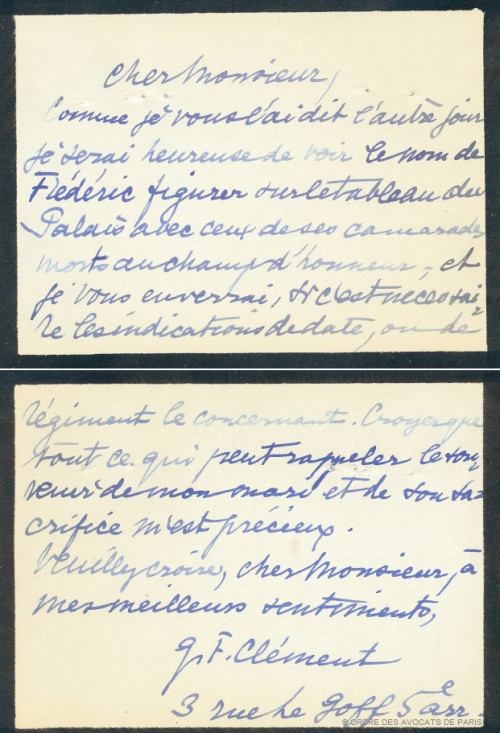 Cher Monsieur,
Comme je vous l'ai dit l'autre jour
je serai heureuse de voir le nom de
Frédéric figurer sur le tableau du
Palais avec ceux de ses camarades
morts au champ d'honneur, et
je vous enverrai, si c'est nécessai
re les indications de date, ou de
régiment le concernant. Croyez que
tout ce qui peut rappeler le sou
venir de mon mari et de son sa
crifice m'est précieux.
Veuillez croire, cher Monsieur, à
mes meilleurs sentiments,
G. F. Clément
3 rue Le Goff 5e arr.
© ORDRE DES AVOCATS DE PARIS